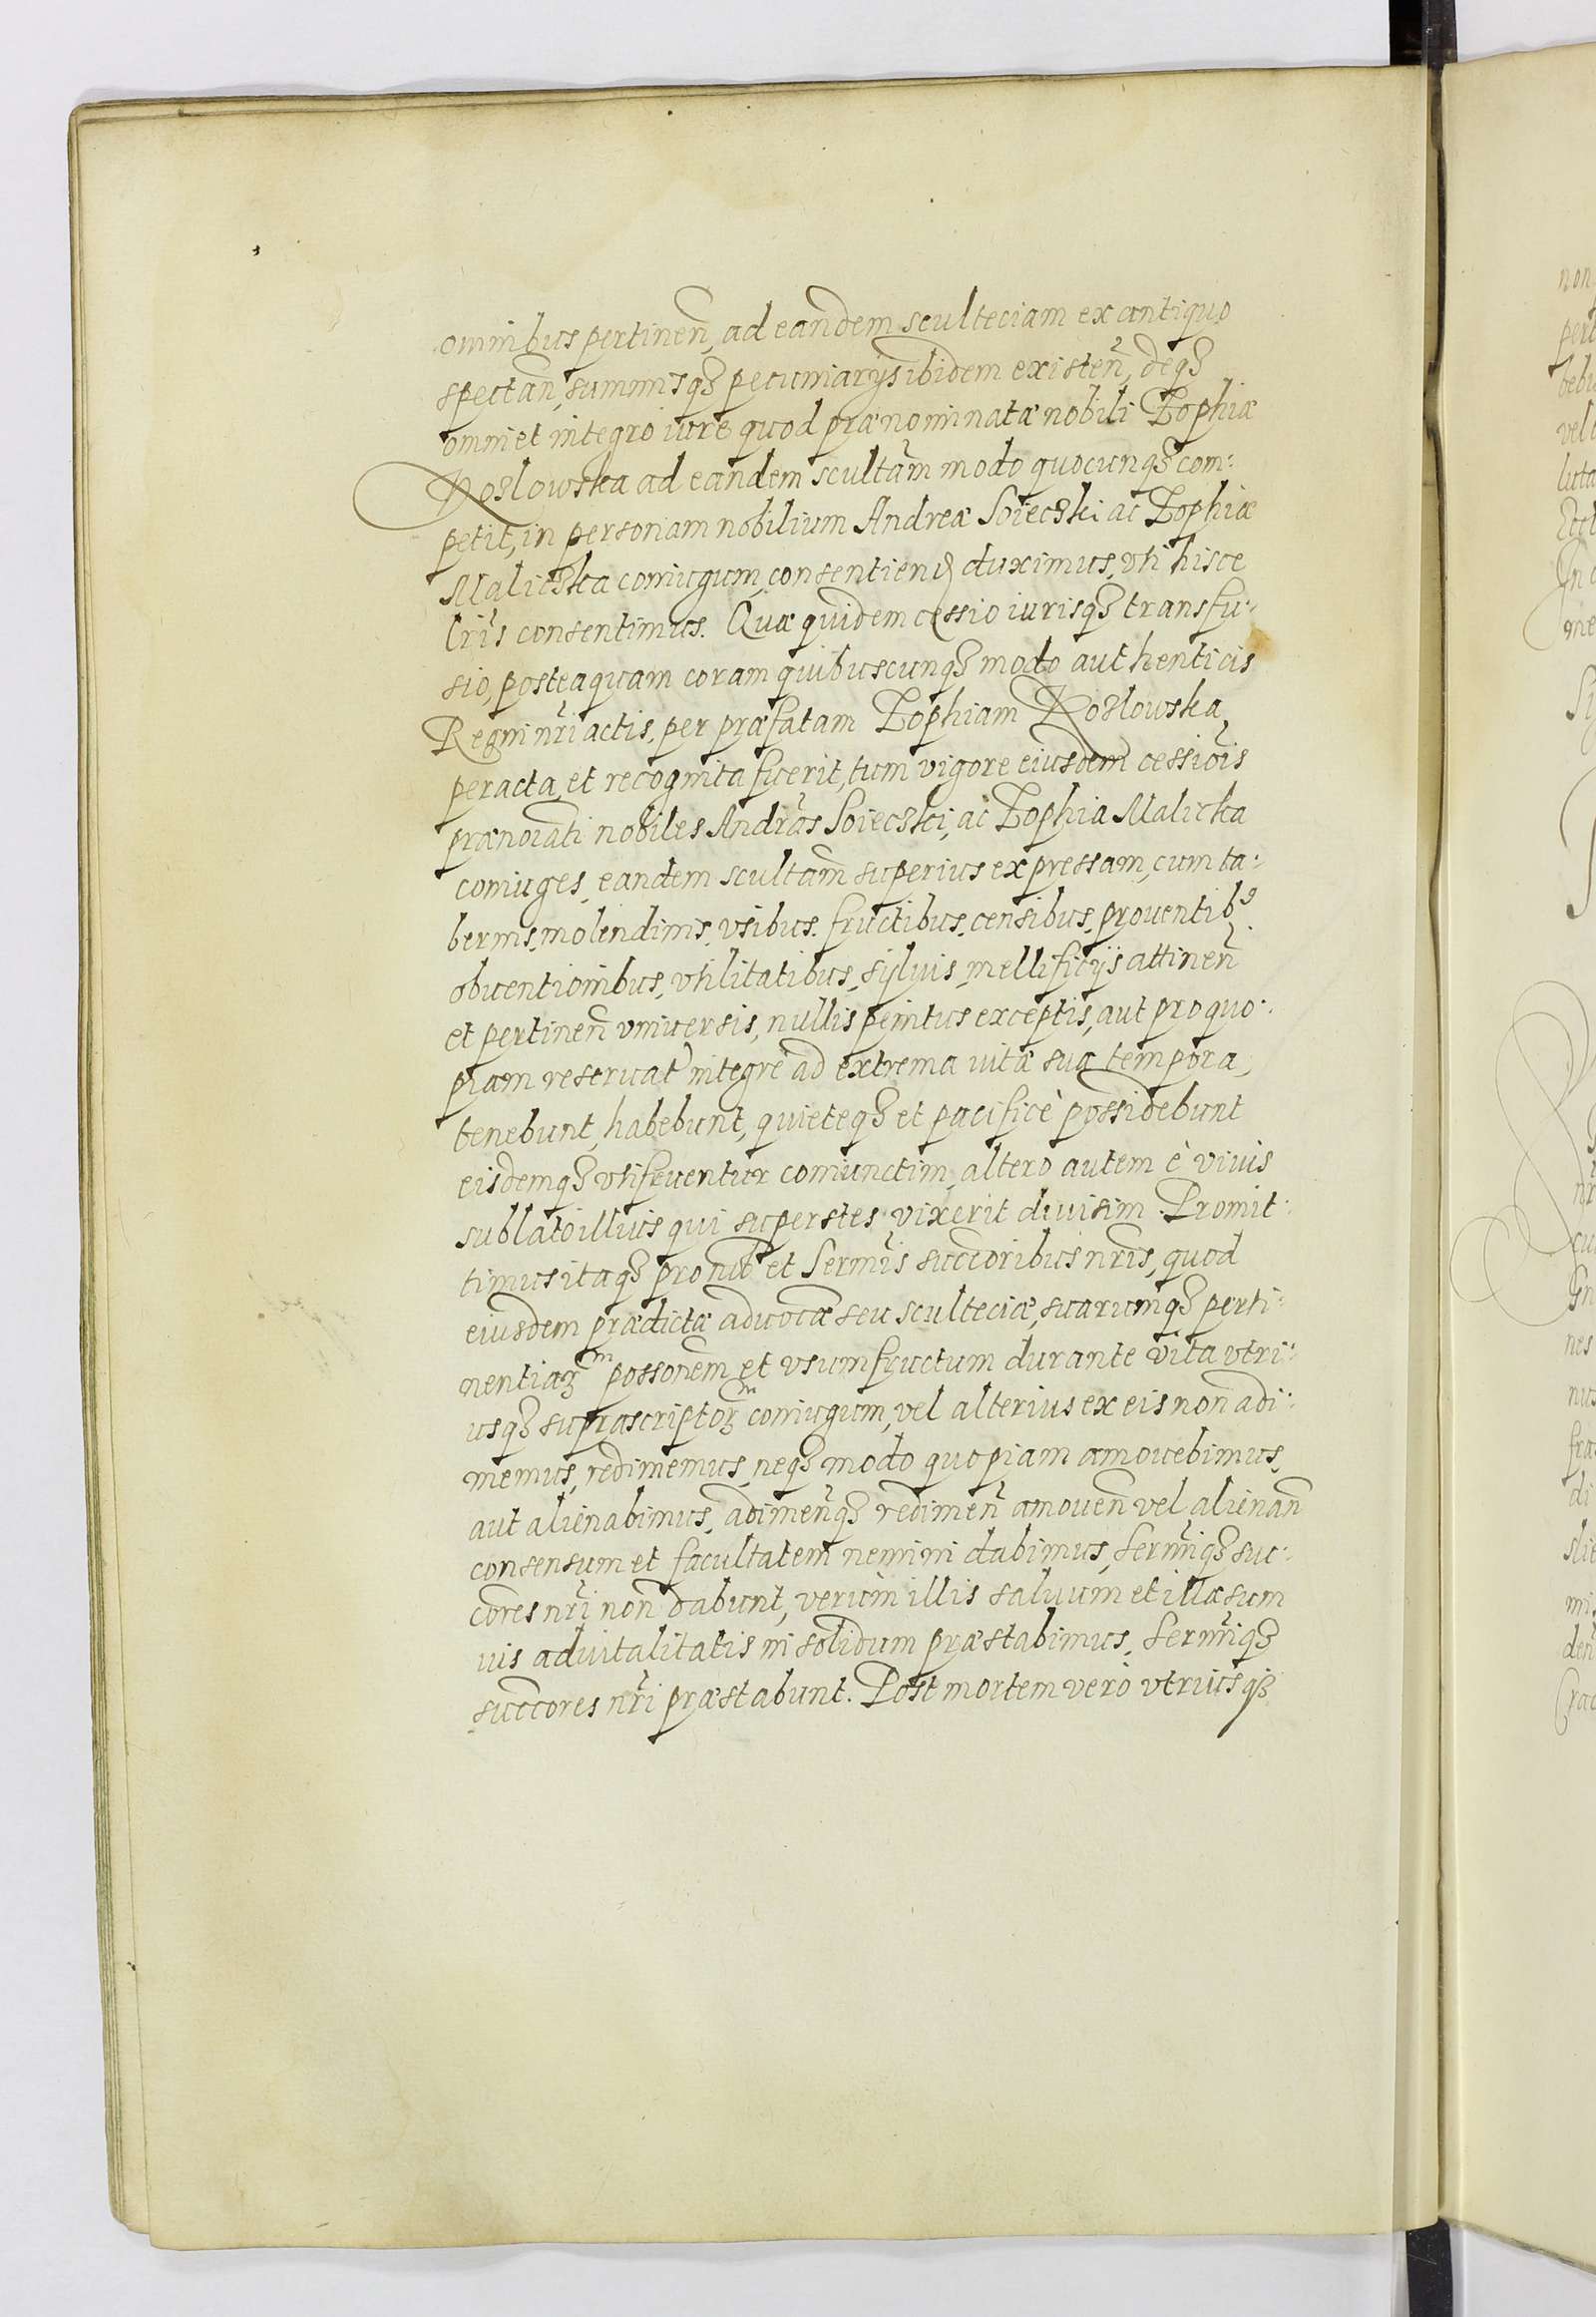 omnibus pertineñ, ad eandem sculteciam ex antiquo
spectañ, summisq₃ pecuniarijs ibidem existeñ, deq₃
omni et integro iure quod prænominatæ nobili Zophiæ
Kozlowska ad eandem scultam̃ modo quocunq₃ com:
petit, in personam nobilium Andreæ Soieczki ac Zophiæ
Maliczka coniugum, consentiend duximus, vti hisce
lr̃is consentimus. Quæ quidem cessio iurisq₃ transfu:
sio, posteaquam coram quibuscunq₃ modo authenticis
Regni nr̃i actis, per præfatam Zophiam Kozlowska
peracta, et recognita fuerit, tum vigore eiusdem cessiõis
prænoĩati nobiles Andr̃as Soieczki, ac Zophia Malicka
coniuges, eandem scultam̃ superius expressam, cum ta:
bernis, molendinis, vsibus, fructibus, censibus, prouentib⁹
obuentionibus, vtilitatibus, syluis, mellificijs attineñ
et pertineñ vniuersis, nullis penitus exceptis, aut pro quo:
piam reseruat integrè ad extrema uitæ suæ tempora
tenebunt, habebunt, quieteq₃ et pacificè possidebunt
eisdemq₃ vtifruentur coniunctim, altero autem è viuis
sublato illius qui superstes vixerit diuisim. Promit:
timus itaq₃ pro nob et Serm̃is succoribus nr̃is, quod
eiusdem prædictæ aduocãe seu sculteciæ, suarumq₃ perti:
nentiaꝝ^m possonem̃ et vsumfructum durante vita vtri:
usq₃ suprascriptoꝝ^m coniugum, vel alterius ex eis non adi:
memus, redimemus, neq₃ modo quopiam amouebimus,
aut alienabimus, adimeñq₃ redimeñ amoueñ vel alienañ
consensum et facultatem nemini dabimus, serm̃iq₃ suc:
cores nr̃i non dabunt, verum illis saluum et illæsum
ius aduitalitatis in solidum præstabimus, serm̃iq₃
succcores nr̃i præstabunt. Post mortem verò vtriusq₃